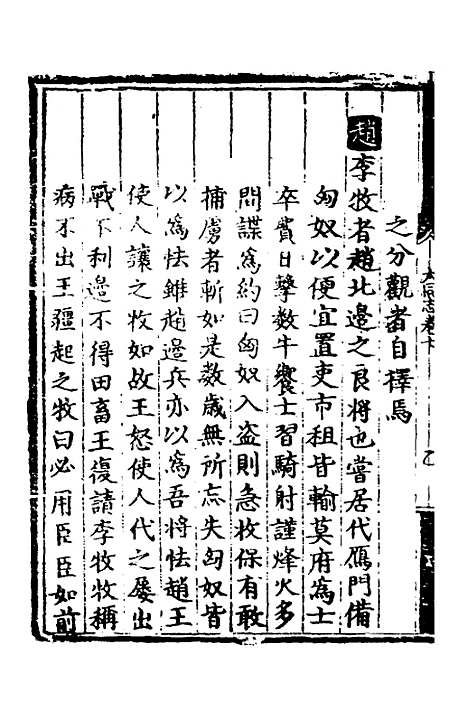 之分觀者自擇焉
趙李牧者趙北邊之良將也嘗居代鴈門備
匈奴以便宜置吏市租皆輸莫府爲士
卒費日擊數牛饗士習騎射謹烽火多
間諜爲約曰匈奴入盜則急收保有敢
捕虜者斬如是數歲無所亡失匈奴皆
以爲怯雖趙邊兵亦以爲吾將怯趙王
使人讓之牧如故王怒使人代之屢出
戰不利邊不得田畜王復請李牧牧稱
病不出王彊起之牧曰必用臣臣如前